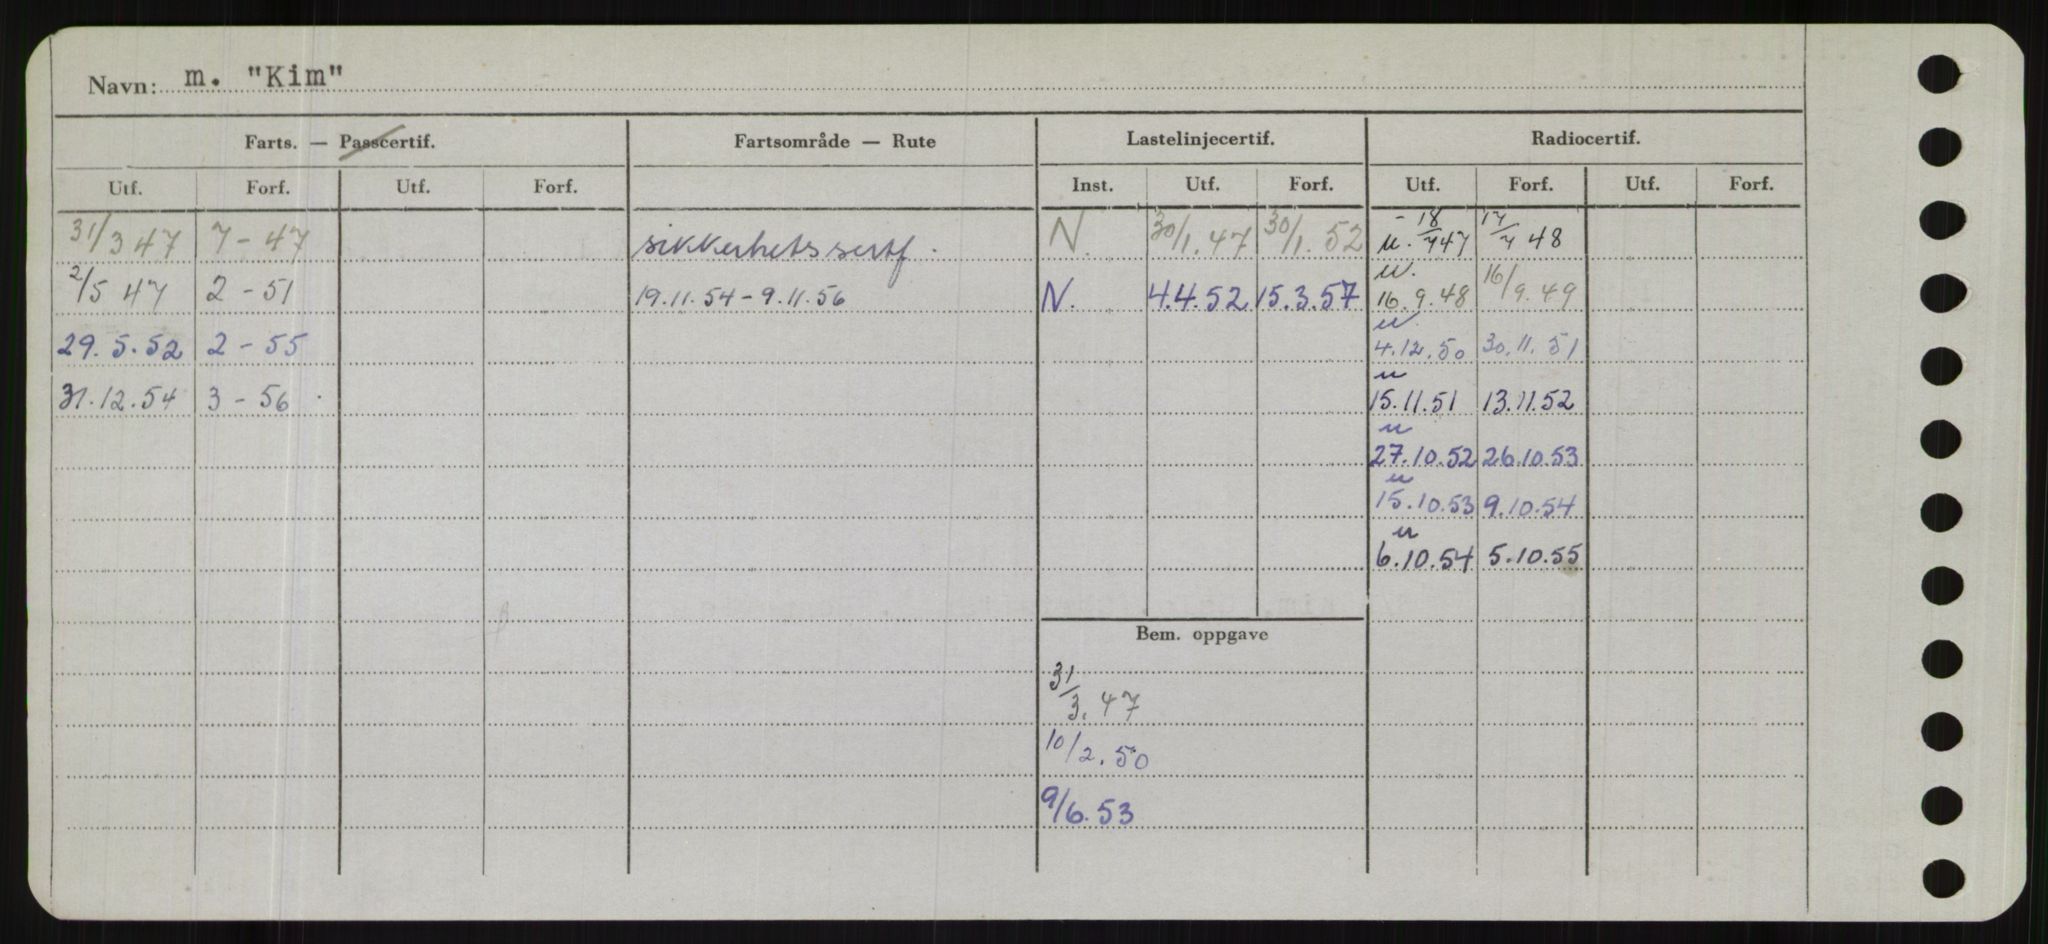 Navn: m. "Kim"
Farts. — Passcertif. Fartsområde — Rute Lastelinjecertif. Radiocertif.
Utf. Forf. Utf. Forf. Inst. Utf. Forf. Utf. Forf. Utf. Forf.
31/3 47 7 - 47 sikkerhetssertf. N. 30/1. 47 30/1. 52 u. 18/7 47 17/7 48
2/5 47 2 - 51 19.11.54 - 9.11.56 N. 4.4.52 15.3.57 u. 16.9.48 16/9.49
29.5.52 2 - 55 u. 4.12.50 30.11.51
31.12.54 3 - 56 u 15.11.51 13.11.52
u 27.10.52 26.10.53
u 15.10.53 9.10.54
u 6.10.54 5.10.55
Bem. oppgave
31/3.47
10/2.50
9/6.53